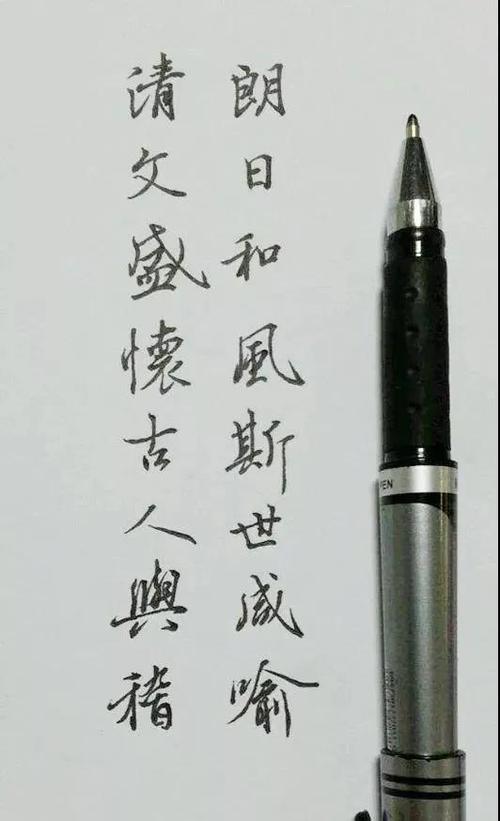 朗日和風斯世咸喻
清文盛懷古人與稽
PEN